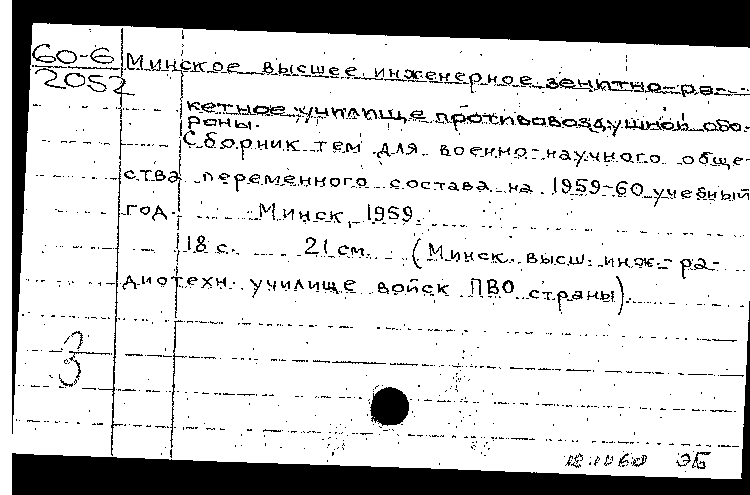 60-6
2052
Минское высшее инженерное зенитно-ра-
кетное училище противовоздушной обо-
роны.
Сборник тем для военно-научного обще-
ства переменного состава на 1959-60 учебный
год. Минск, 1959.
18 с. 21 см. (Минск. высш. инж.-ра-
диотехн. училище войск ПВО страны).
3
ЭБ